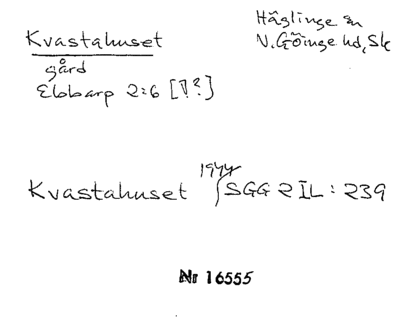 Kvastahuset
gård
Ebbarp 2:6 [1?]
Häglinge sn
V. Göinge hd, Sk
Kvastahuset 1944 SGG 2 IL : 239
Nr 16555